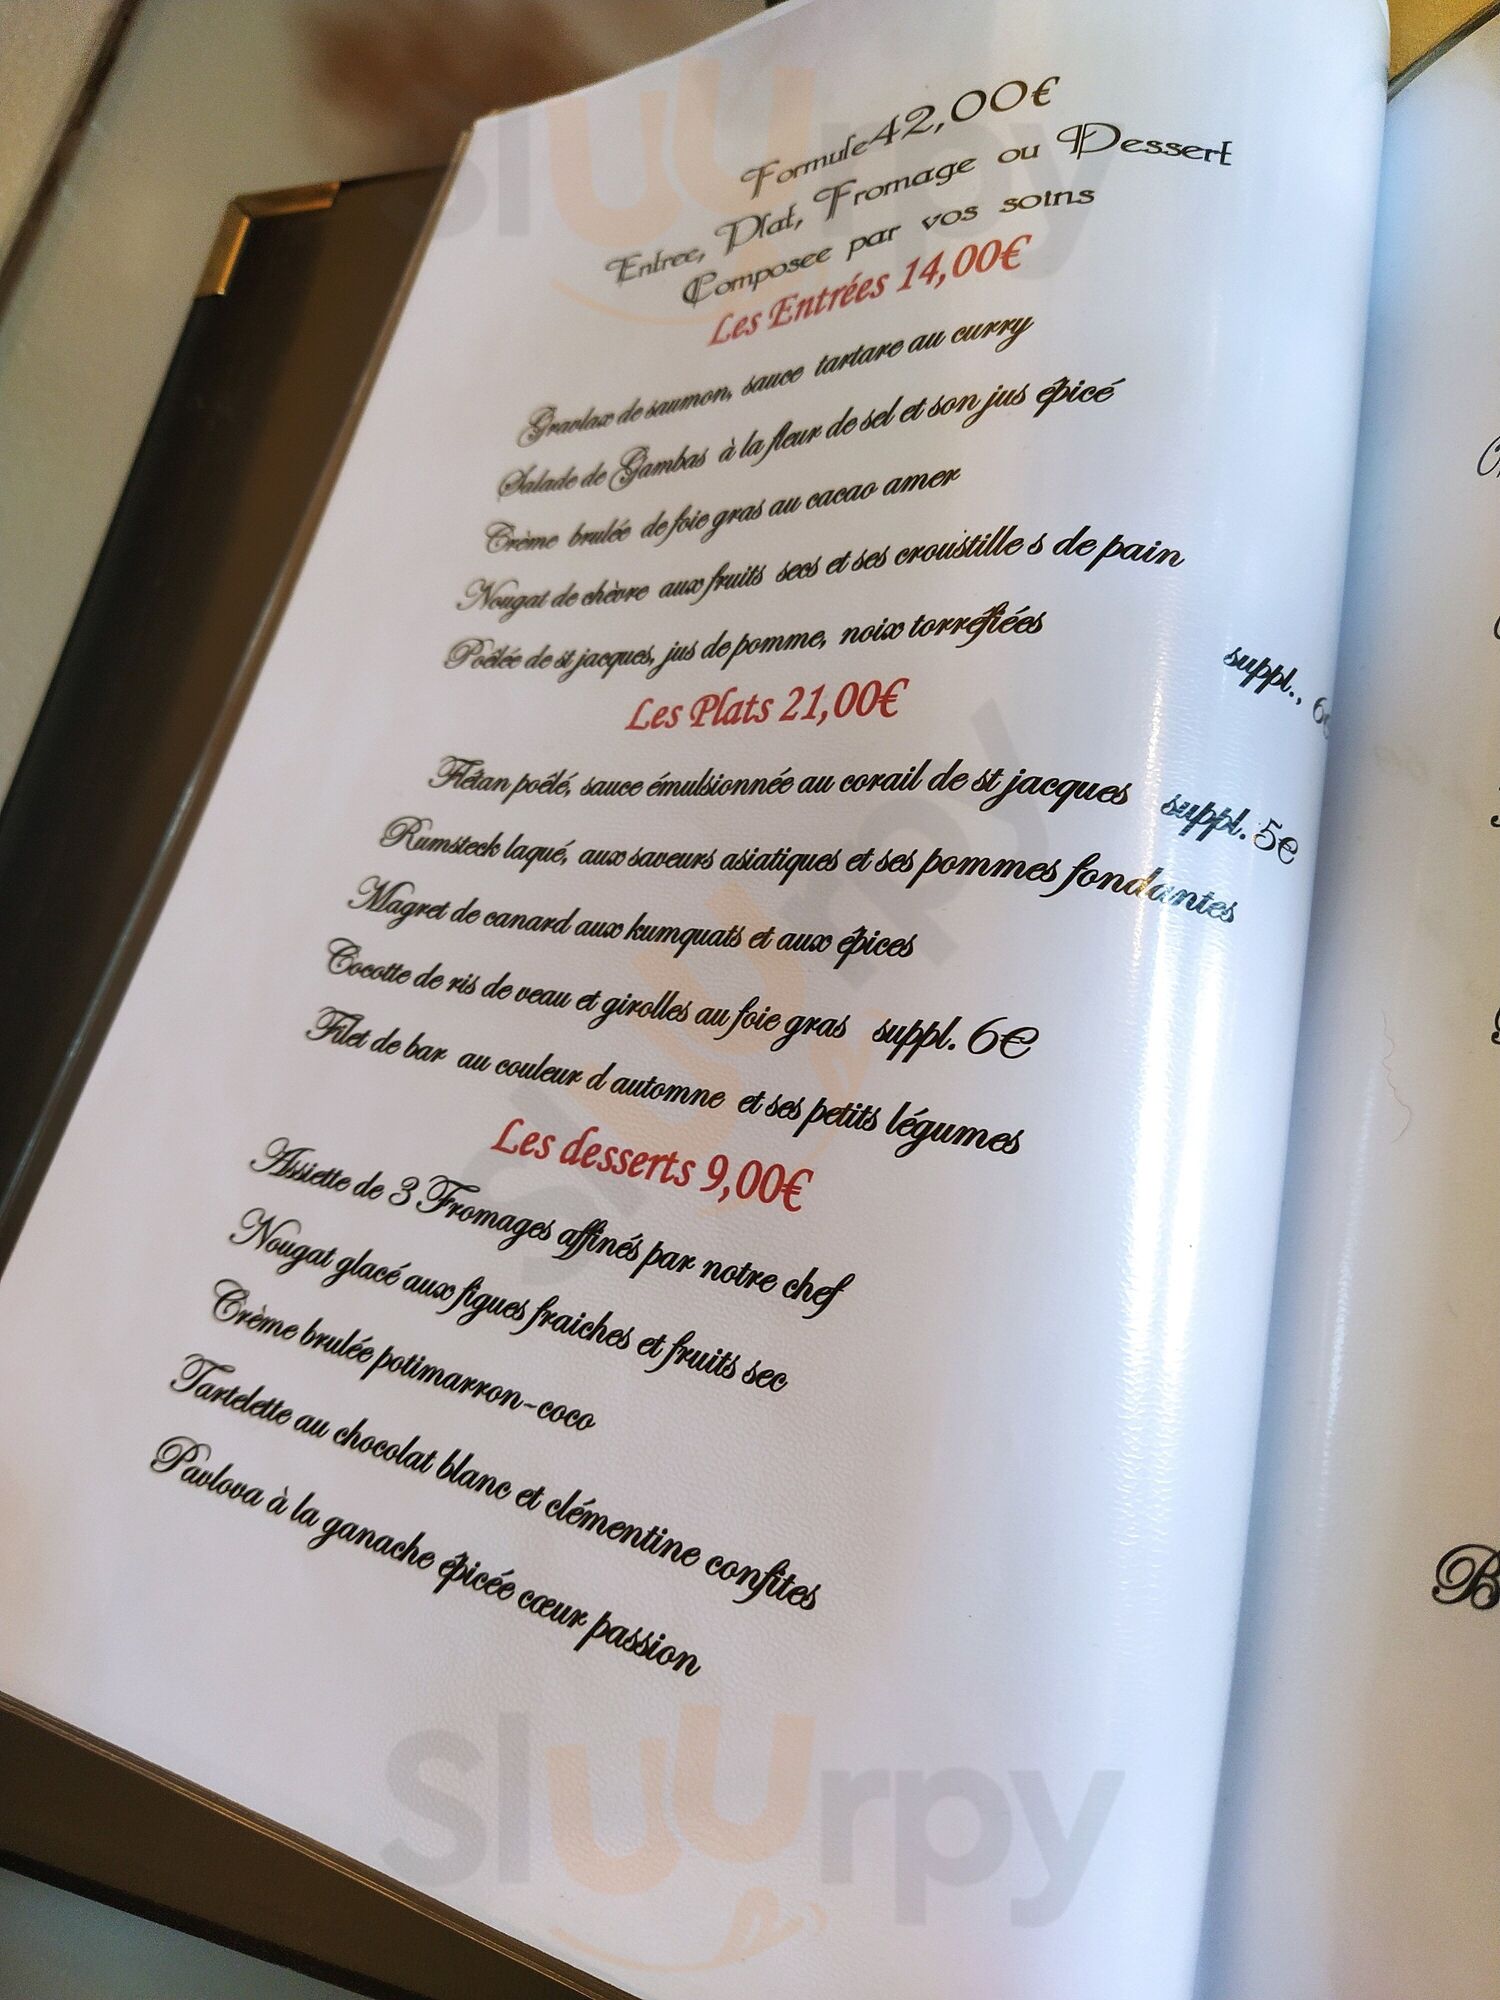 Formule 42,00€
Entree, Plat, Fromage ou Dessert
Composee par vos soins
Les Entrées 14,00€
Gravlax de saumon, sauce tartare au curry
Salade de Gambas à la fleur de sel et son jus épicé
Crème brulée de foie gras au cacao amer
Nougat de chèvre aux fruits secs et ses croustille s de pain
Poêlée de st jacques, jus de pomme, noix torréfiées suppl., 6€
Les Plats 21,00€
Flétan poêlé, sauce émulsionnée au corail de st jacques suppl. 5€
Rumsteck laqué, aux saveurs asiatiques et ses pommes fondantes
Magret de canard aux kumquats et aux épices
Cocotte de ris de veau et girolles au foie gras suppl. 6€
Filet de bar au couleur d automne et ses petits légumes
Les desserts 9,00€
Assiette de 3 Fromages affinés par notre chef
Nougat glacé aux figues fraiches et fruits sec
Crème brulée potimarron-coco
Tartelette au chocolat blanc et clémentine confites
Pavlova à la ganache épicée cœur passion
sluurpy
sluurpy
Sluurpy